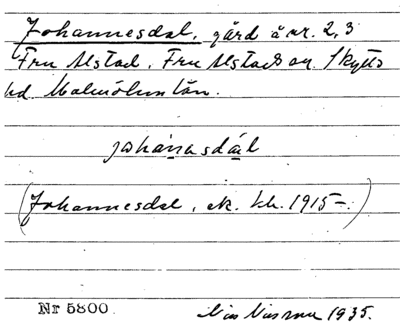 Johannesdal, gård å nr. 2, 3
Fru Alstad, Fru Alstads sn. Skytts
hd Malmöhus län.
johanasdal
(Johannesdal, ek. kb. 1915–.)
Nr 5800. Nils 1935.